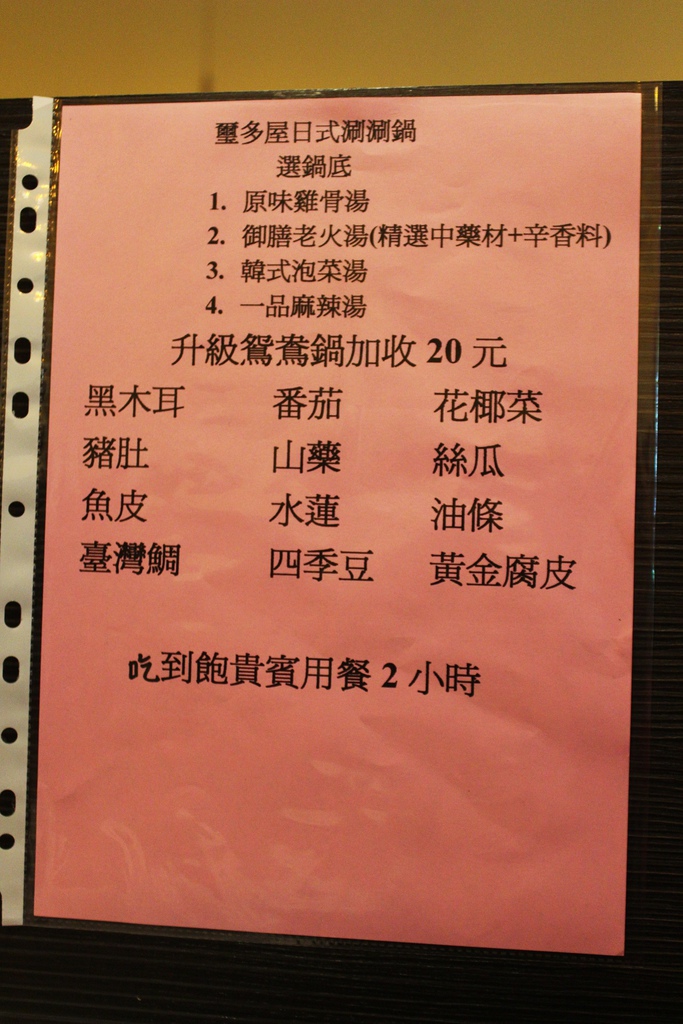 璽多屋日式涮涮鍋
選鍋底
1. 原味雞骨湯
2. 御膳老火湯(精選中藥材+辛香料)
3. 韓式泡菜湯
4. 一品麻辣湯
升級鴛鴦鍋加收 20 元
黑木耳 番茄 花椰菜
豬肚 山藥 絲瓜
魚皮 水蓮 油條
臺灣鯛 四季豆 黃金腐皮
吃到飽貴賓用餐 2 小時